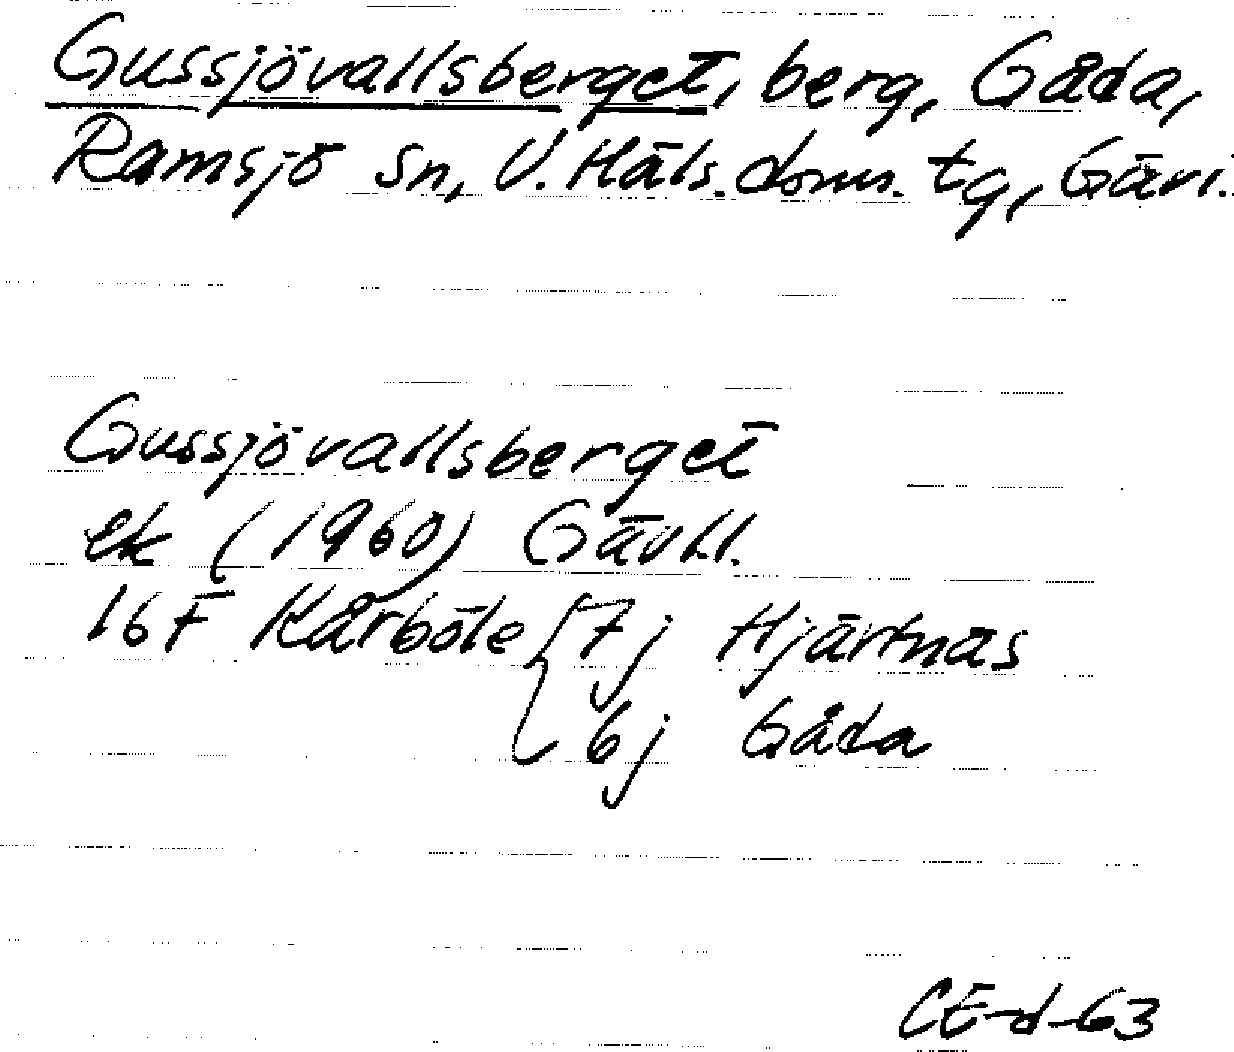 Gussjövallsberget, berg, Gåda,
Ramsjö sn, V. Häls. doms. tg, Gävl.
Gussjövallsberget
ek (1960) Gävl l.
16 F Kårböle { 7j Hjärtnäs
6j Gåda
CE-d-63